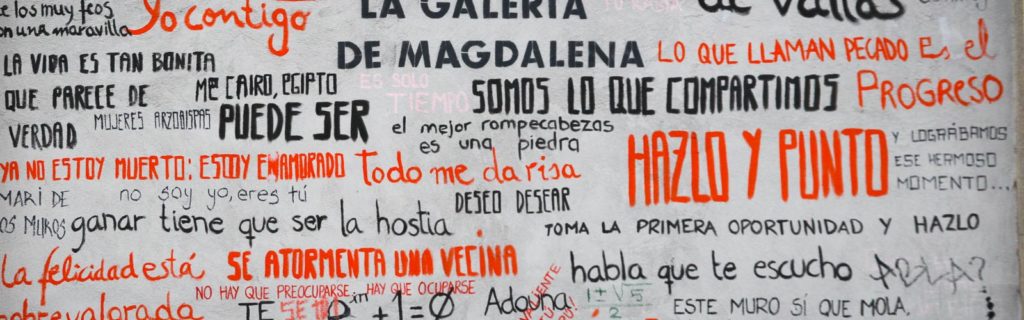 los muy feos
Yo contigo
LA GALERÍA
de vallas
una maravilla
DE MAGDALENA
LO QUE LLAMAN PECADO Es el
PROGRESO
LA VIDA ES TAN BONITA
QUE PARECE DE
VERDAD
Me CAIRO, EGIPTO
ES SOLO
TIEMPO
SOMOS LO QUE COMPARTIMOS
MUJERES ARZOBISPAS
PUEDE SER
el mejor rompecabezas
es una piedra
HAZLO Y PUNTO
Y LOGRÁBAMOS
ESE HERMOSO
MOMENTO...
YA NO ESTOY MUERTO: ESTOY ENAMORADO
Todo me da risa
MARI DE
OS MUROS
no soy yo, eres tú
DESEO DESEAR
ganar tiene que ser la hostia
TOMA LA PRIMERA OPORTUNIDAD Y HAZLO
La felicidad está
sobrevalorada
SE ATORMENTA UNA VECINA
habla que te escucho
NO HAY QUE PREOCUPARSE, HAY QUE OCUPARSE
TE
+1=0
Aduna
1±√5
2
ESTE MURO SÍ QUE MOLA.